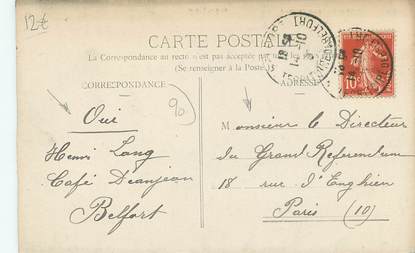 12€
CARTE POSTALE
La Correspondance au recto n'est pas acceptée
(Se renseigner à la Poste.)
CORRESPONDANCE
ADRESSE
90
Oui
Henri Lang
Café Deanjean
Belfort
Monsieur le Directeur
du Grand Referendum
18 rue d'Enghien
Paris (10)
10